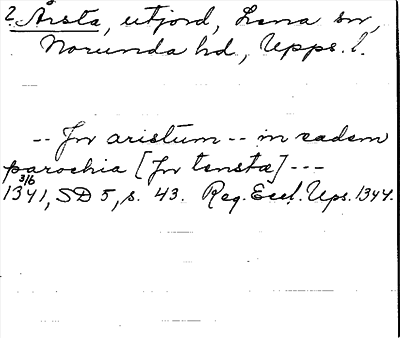 ? Årsta, utjord, Lena sn,
Norunda hd, Upps. l.
-- Jn aristum -- in eadem
parochia [Jn tensta] ---
1341 3/6, SD 5, s. 43. Reg. Eccl. Ups. 1344.